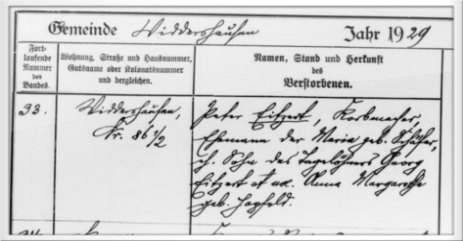 Gemeinde Widdershausen Jahr 1929
Fort-
laufende
Nummer
des
Bandes.
Wohnung, Straße und Hausnummer,
Gutsname oder Kolonatsnummer
und dergleichen.
Namen, Stand und Herkunft
des
Verstorbenen.
33.
Widdershausen,
Nr. 86 1/2
Peter Eitzert, Korbmacher,
Ehemann der Maria geb. Schäfer,
Sohn des Tagelöhners Georg
Eitzert et ux. Anna Margarethe
geb.